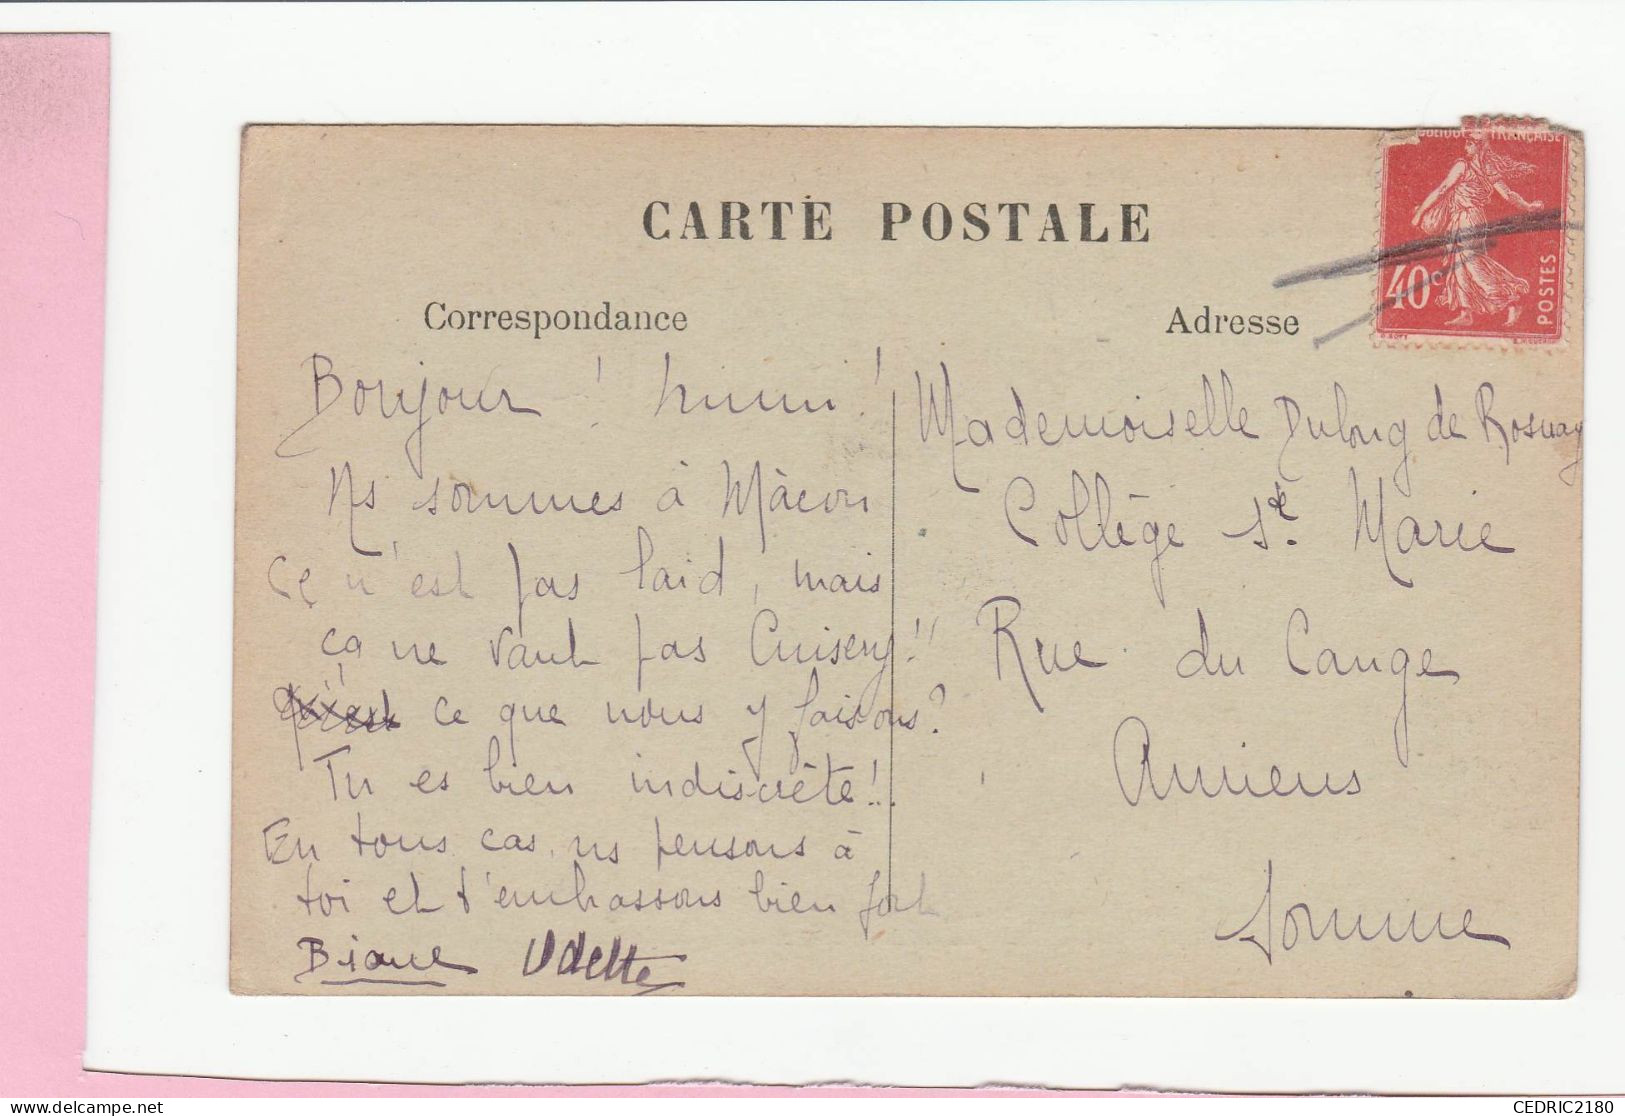 CARTE POSTALE
Correspondance
Bonjour ! mimi !
Ns sommes à Mâcon
Ce n'est pas laid, mais
ça ne vaut pas Cuisery !!
ce que nous y faisons ?
Tu es bien indiscrète !..
En tous cas, ns pensons à
toi et t'embrassons bien fort
Odette
Adresse
Mademoiselle Dulong de Rosnay
Collège Ste. Marie
Rue du Cange
Amiens
Somme
FRANÇAISE
40c
POSTES
CEDRIC2180